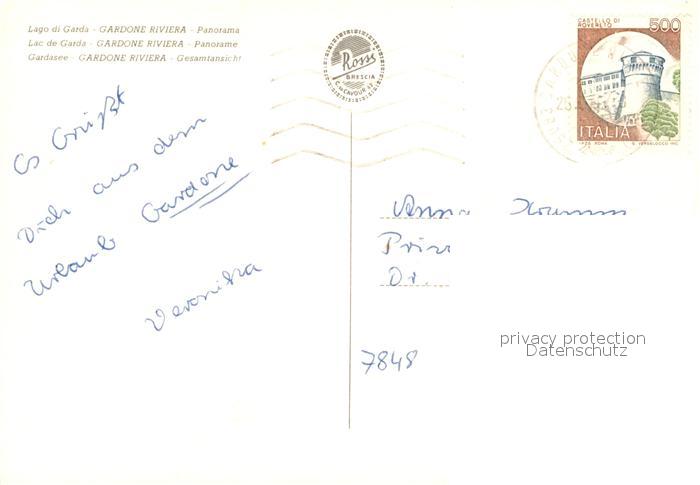 Lago di Garda - GARDONE RIVIERA - Panorama
Lac de Garda - GARDONE RIVIERA - Panorame
Gardasee - GARDONE RIVIERA - Gesamtansicht
Rossi
BRESCIA
C. CAVOUR 37
CASTELLO DI
ROVERETO
500
ITALIA
Es Grüßt
Dich aus dem
Urlaub Gardone
Veronika
Anna
Dr.
7848
privacy protection
Datenschutz